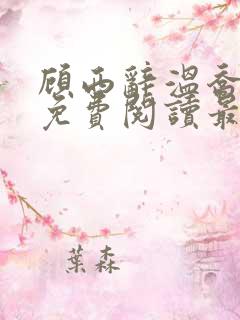 顾西辭溫香
免費閱讀最
葉森